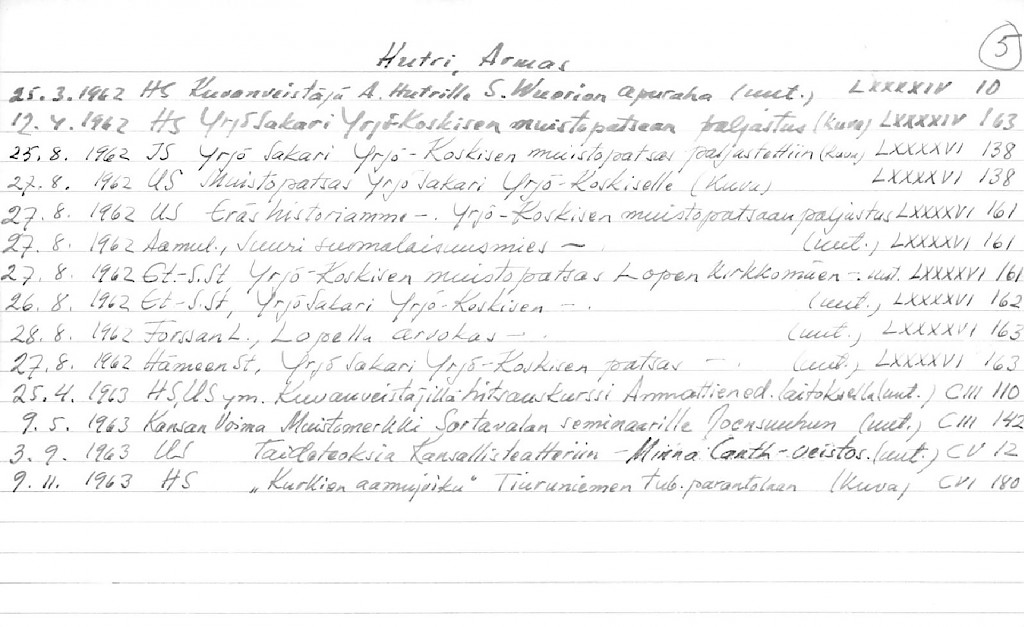 5
Hutri, Armas
25.3.1962 HS Kuvanveistäjä A. Hutrille S. Wuorion apuraha (uut.) LXXXXIV 10
12.4.1962 HS Yrjö Sakari Yrjö-Koskisen muistopatsaan paljastus (kuva) LXXXXIV 163
25.8. 1962 IS Yrjö Sakari Yrjö-Koskisen muistopatsas paljastettiin (kuva) LXXXXVI 138
27.8. 1962 US Muistopatsas Yrjö Sakari Yrjö-Koskiselle (Kuva) LXXXXVI 138
27.8. 1962 US Eräs historiamme -. Yrjö-Koskisen muistopatsaan paljastus LXXXXVI 161
27.8. 1962 Aamul., Suuri suomalaisuusmies - (uut.) LXXXXVI 161
27.8. 1962 Et-S.St Yrjö-Koskisen muistopatsas Lopen kirkkomäen -. uut. LXXXXVI 161
26.8. 1962 Et-S.St, Yrjö Sakari Yrjö-Koskisen -. (uut.) LXXXXVI 162
28.8. 1962 Forssan L., Lopella arvokas -. (uut.) LXXXXVI 163
27.8. 1962 Hämeen St, Yrjö Sakari Yrjö-Koskisen patsas - (uut.) LXXXXVI 163
25.4. 1963 HS, US ym. Kuvanveistäjillä hitsauskurssi Ammattiened. laitoksella (uut.) CIII 110
9.5. 1963 Kansan Voima Muistomerkki Sortavalan seminaarille Joensuuhun (uut.) CIII 142
3.9. 1963 US Taideteoksia Kansallisteatteriin - Minna Canth-veistos. (uut.) CV 12
9.11. 1963 HS „Kurkien aamujoiku" Tiuruniemen tub. parantolaan (Kuva) CVI 180